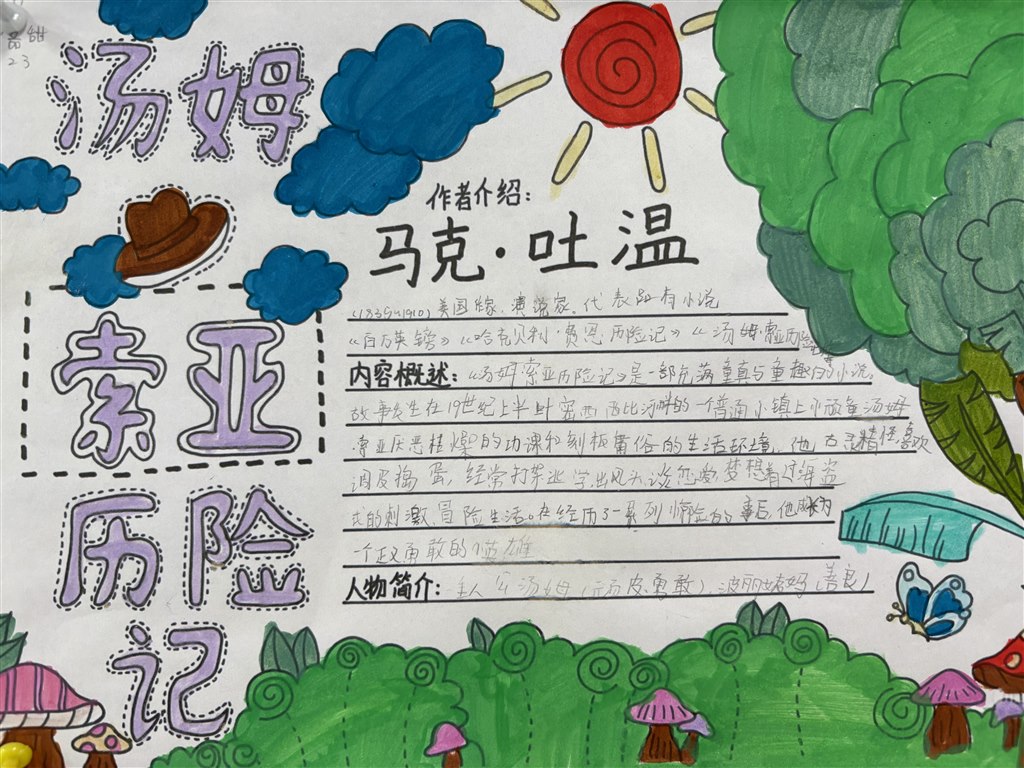 甜
23
汤姆
索亚
历险
记
作者介绍:
马克·吐温
(1835~1910)美国作家、演说家、代表品有小说
《百万英镑》《哈克贝利·费恩历险记》《汤姆·索亚历险
内容概述:《汤姆·索亚历险记》是一部充满童真与童趣的小说。
故事发生在19世纪上半叶密西西比河畔的一个普通小镇上小顽童汤姆
索亚厌恶枯燥的功课和刻板庸俗的生活环境,他古灵精怪、喜欢
调皮捣蛋,经常打架逃学,出风头,谈恋爱,梦想着过海盗
式的刺激冒险生活。在经历了一系列的事后,他成为
一个正义勇敢的英雄
人物简介:主人公汤姆(顽皮、勇敢)、波丽姨妈(善良)